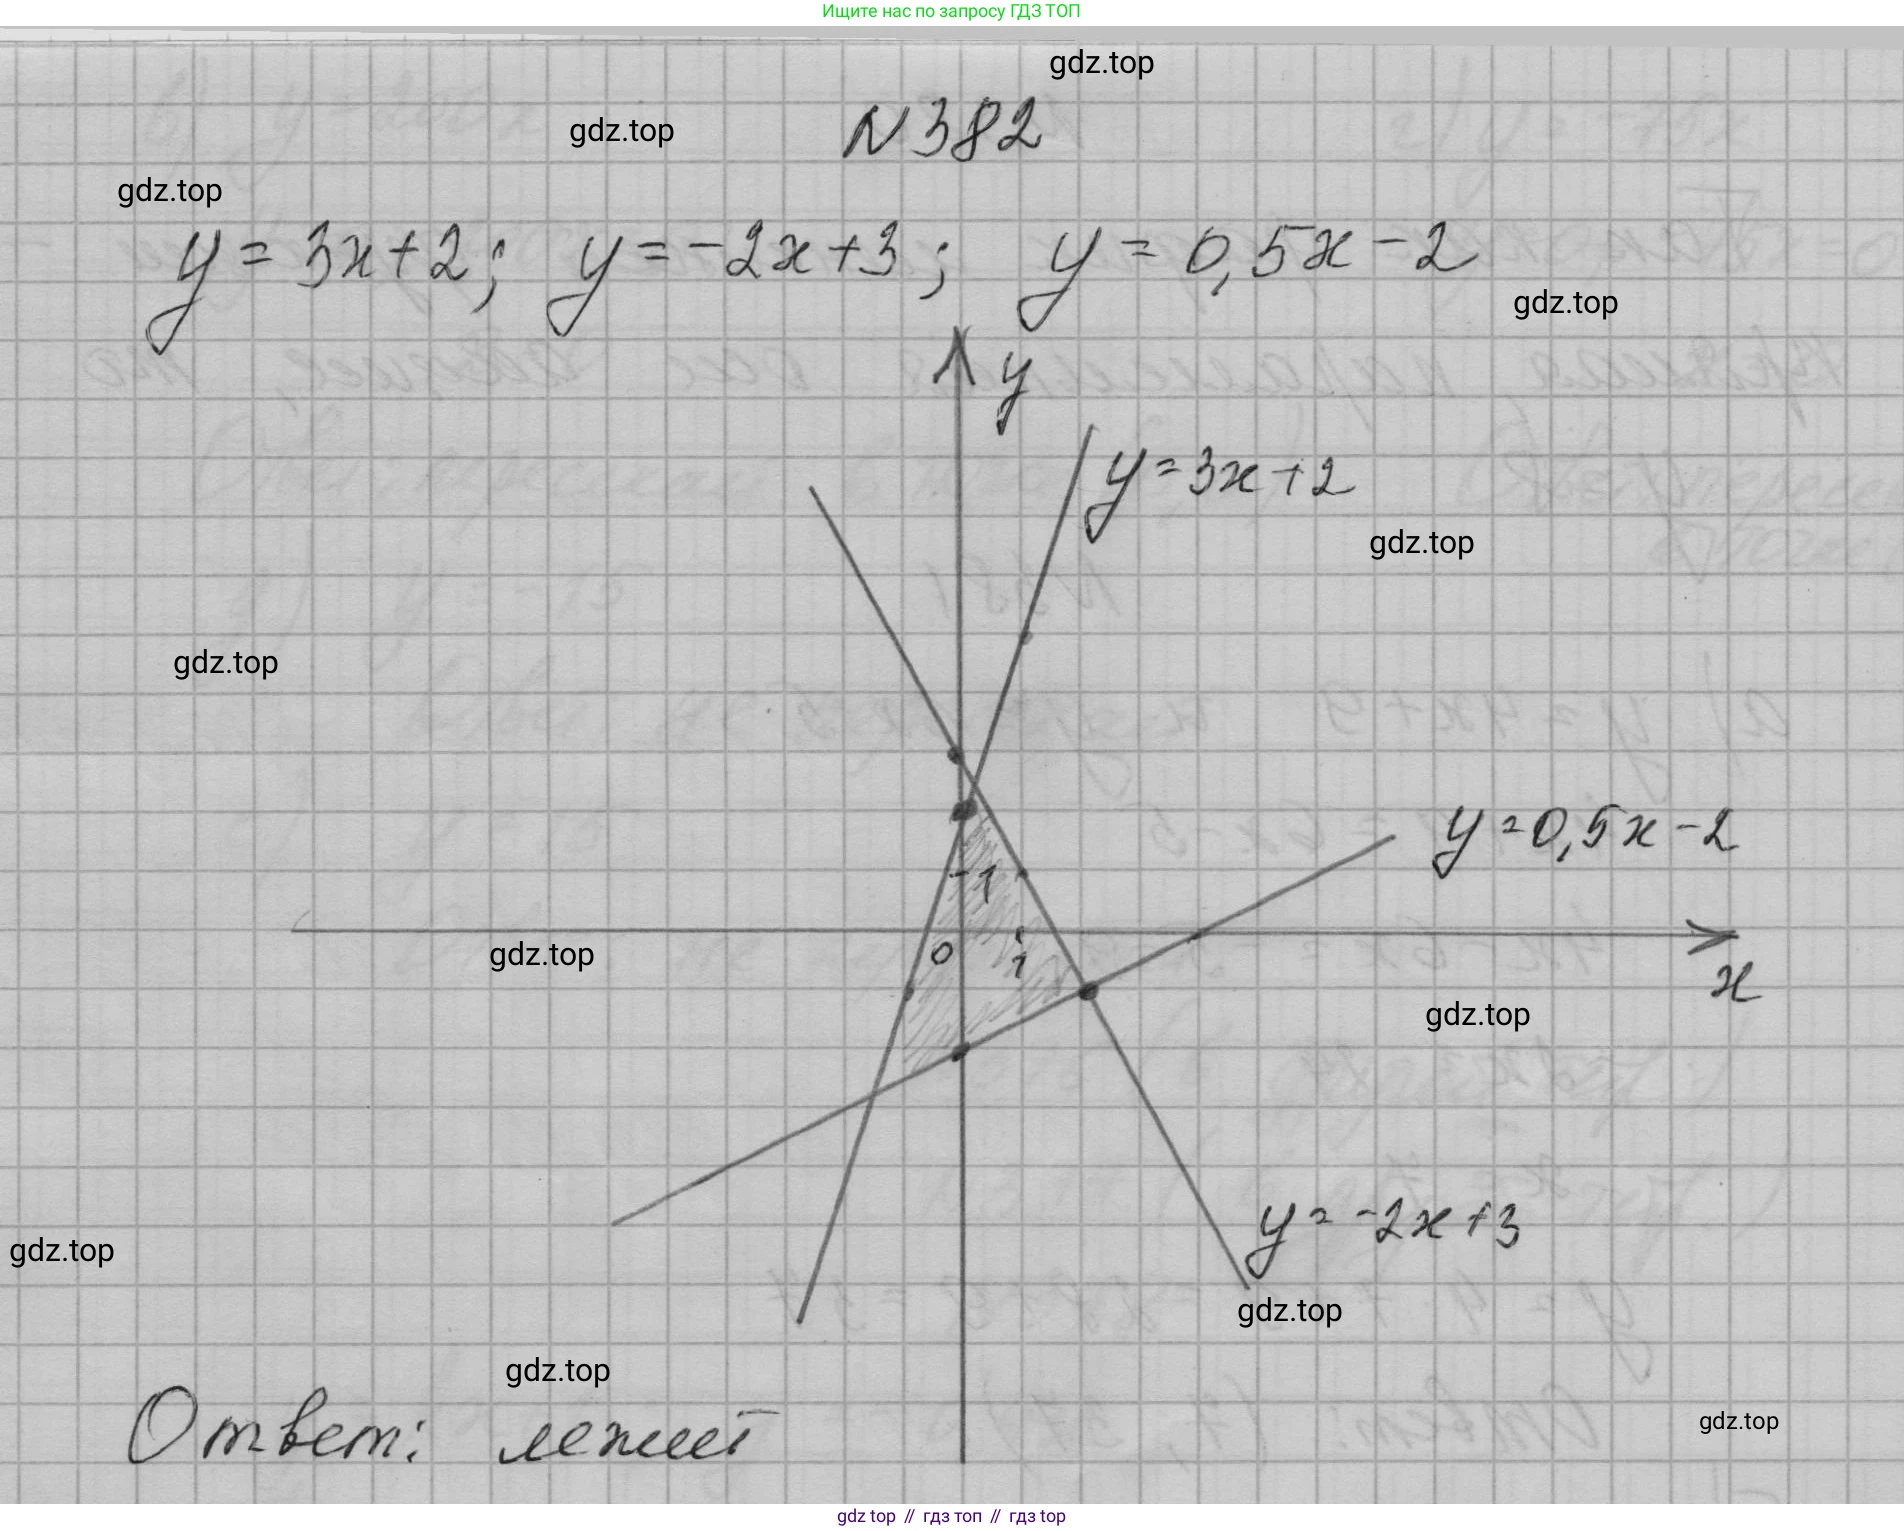 Ищите нас по запросу ГДЗ ТОП
gdz.top
N 382
gdz.top
gdz.top
y = 3x+2; y = -2x+3; y = 0,5x-2
gdz.top
y
y=3x+2
gdz.top
gdz.top
y=0,5x-2
1
0
1
gdz.top
x
gdz.top
y=-2x+3
gdz.top
gdz.top
gdz.top
Ответ: лежит
gdz.top
gdz top // гдз топ // гдз top